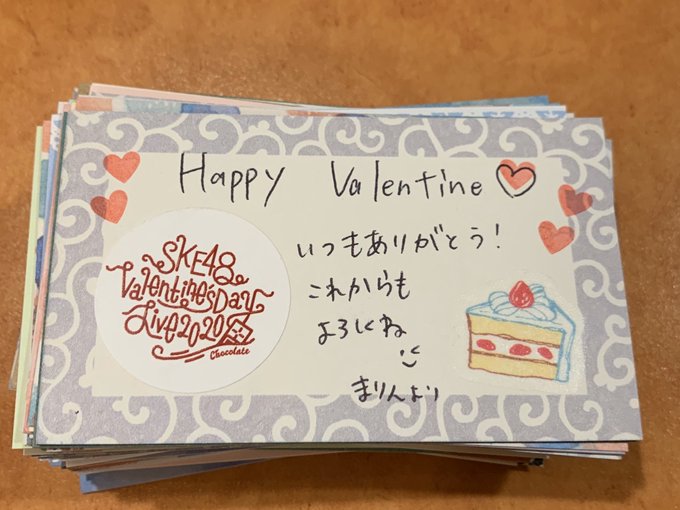 Happy Valentine
いつもありがとう!
これからも
よろしくね
まりんより
SKE48
Valentine's Day
Live 2020
Chocolate